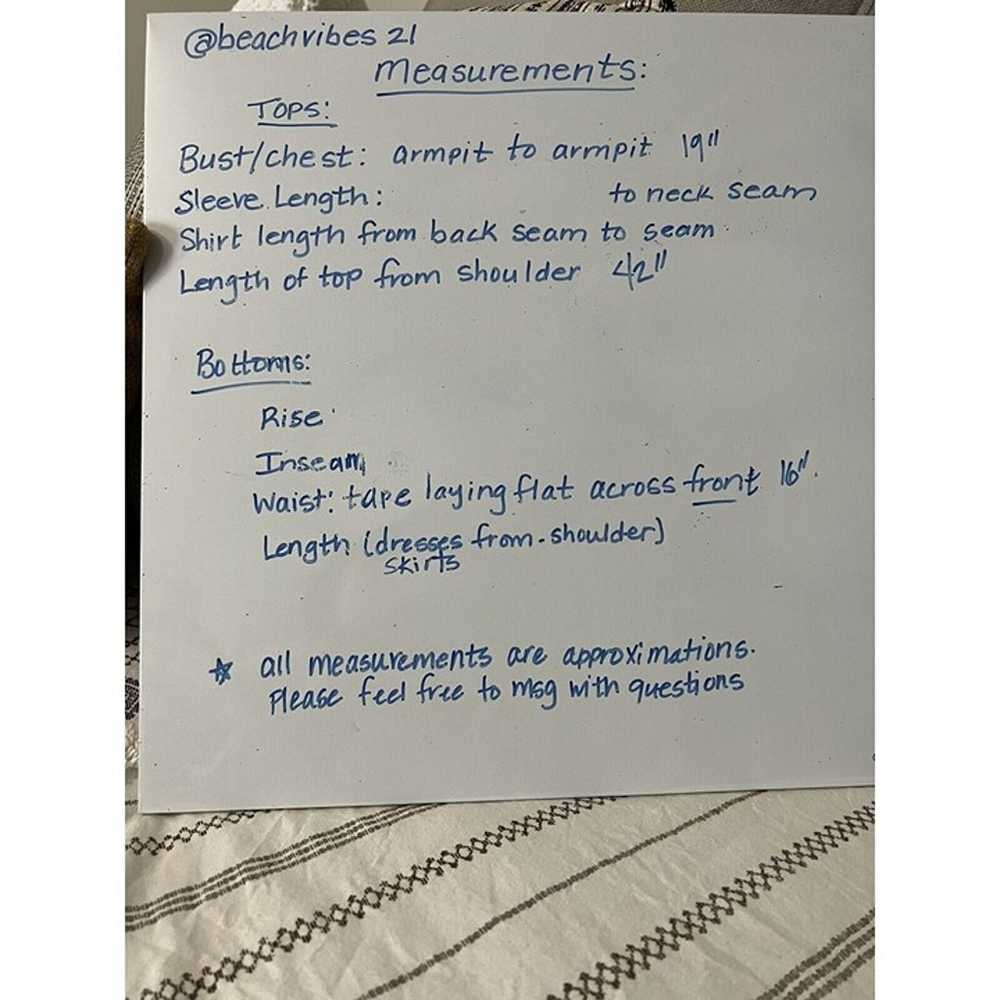 @beachvibes 21
Measurements:
Tops:
Bust/chest: armpit to armpit 19"
Sleeve Length: to neck seam
Shirt length from back seam to seam
Length of top from shoulder 42"
Bottoms:
Rise
Inseam
Waist: tape laying flat across front 16".
Length (dresses from-shoulder)
skirts
☆ all measurements are approximations.
Please feel free to msg with questions